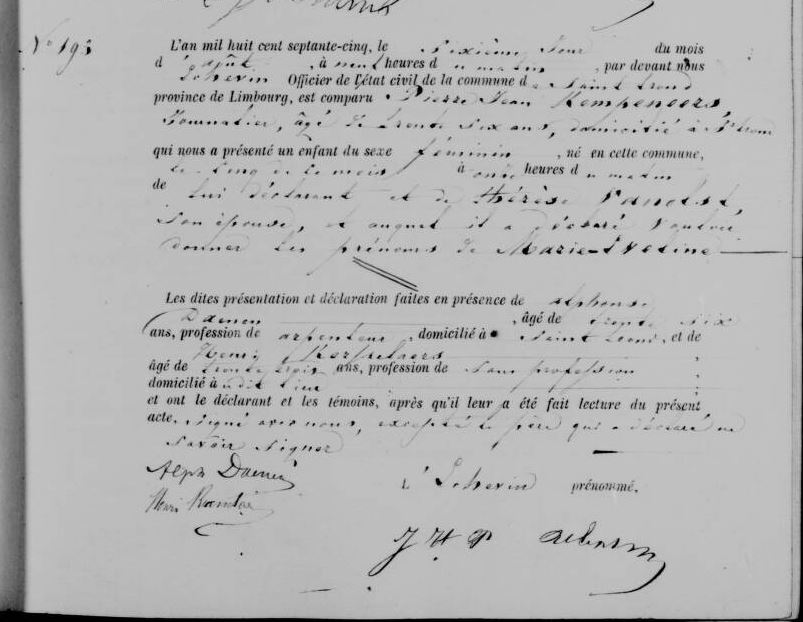 N° 193
L'an mil huit cent septante-cinq, le Sixième Jour du mois
d'août, à neuf heures du matin, par devant nous
Echevin Officier de l'état civil de la commune de Saint Trond
province de Limbourg, est comparu Pierre Jean Kempeneers,
Journalier, âgé de trente six ans, domicilié à St Trond
qui nous a présenté un enfant du sexe féminin, né en cette commune,
le cinq de ce mois à onze heures du matin
de lui déclarant et de Thérèse
Son épouse, et auquel il a déclaré vouloir
donner les prénoms de Marie
Les dites présentation et déclaration faites en présence de alphonse
Daenen, âgé de trente six
ans, profession de arpenteur, domicilié à Saint Trond, et de
Henri
âgé de trente trois ans, profession de Sans profession
domicilié à dit lieu
et ont le déclarant et les témoins, après qu'il leur a été fait lecture du présent
acte, Signé avec nous, excepté le père qui a déclaré ne
Savoir Signer
Alph Daenen
L'Echevin prénommé,
Henri
J H P